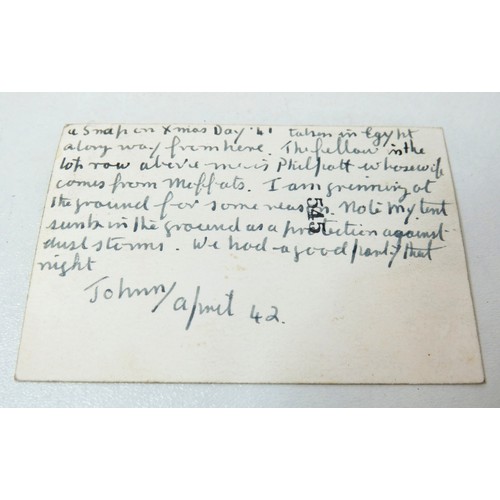 a Snap on Xmas Day '41 taken in Egypt
a long way from here. The fellow in the
top row above me is Philpott whose wife
comes from Moffats. I am grinning at
the ground for some reason. Note my tent
sunk in the ground as a protection against
dust storms. We had a good party that
night
Johnny
April 42.
545